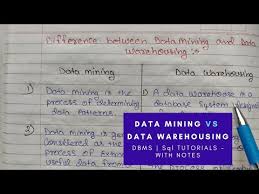 Difference between Data Mining and Data
Warehousing :-
Data mining
Data Warehousing
1) Data mining is the
process of determining
data patterns.
1) Data Warehousing is a
database system
2) Data mining is
considered as the
process of
useful data from
DATA MINING VS
DATA WAREHOUSING
DBMS | Sql TUTORIALS -
WITH NOTES